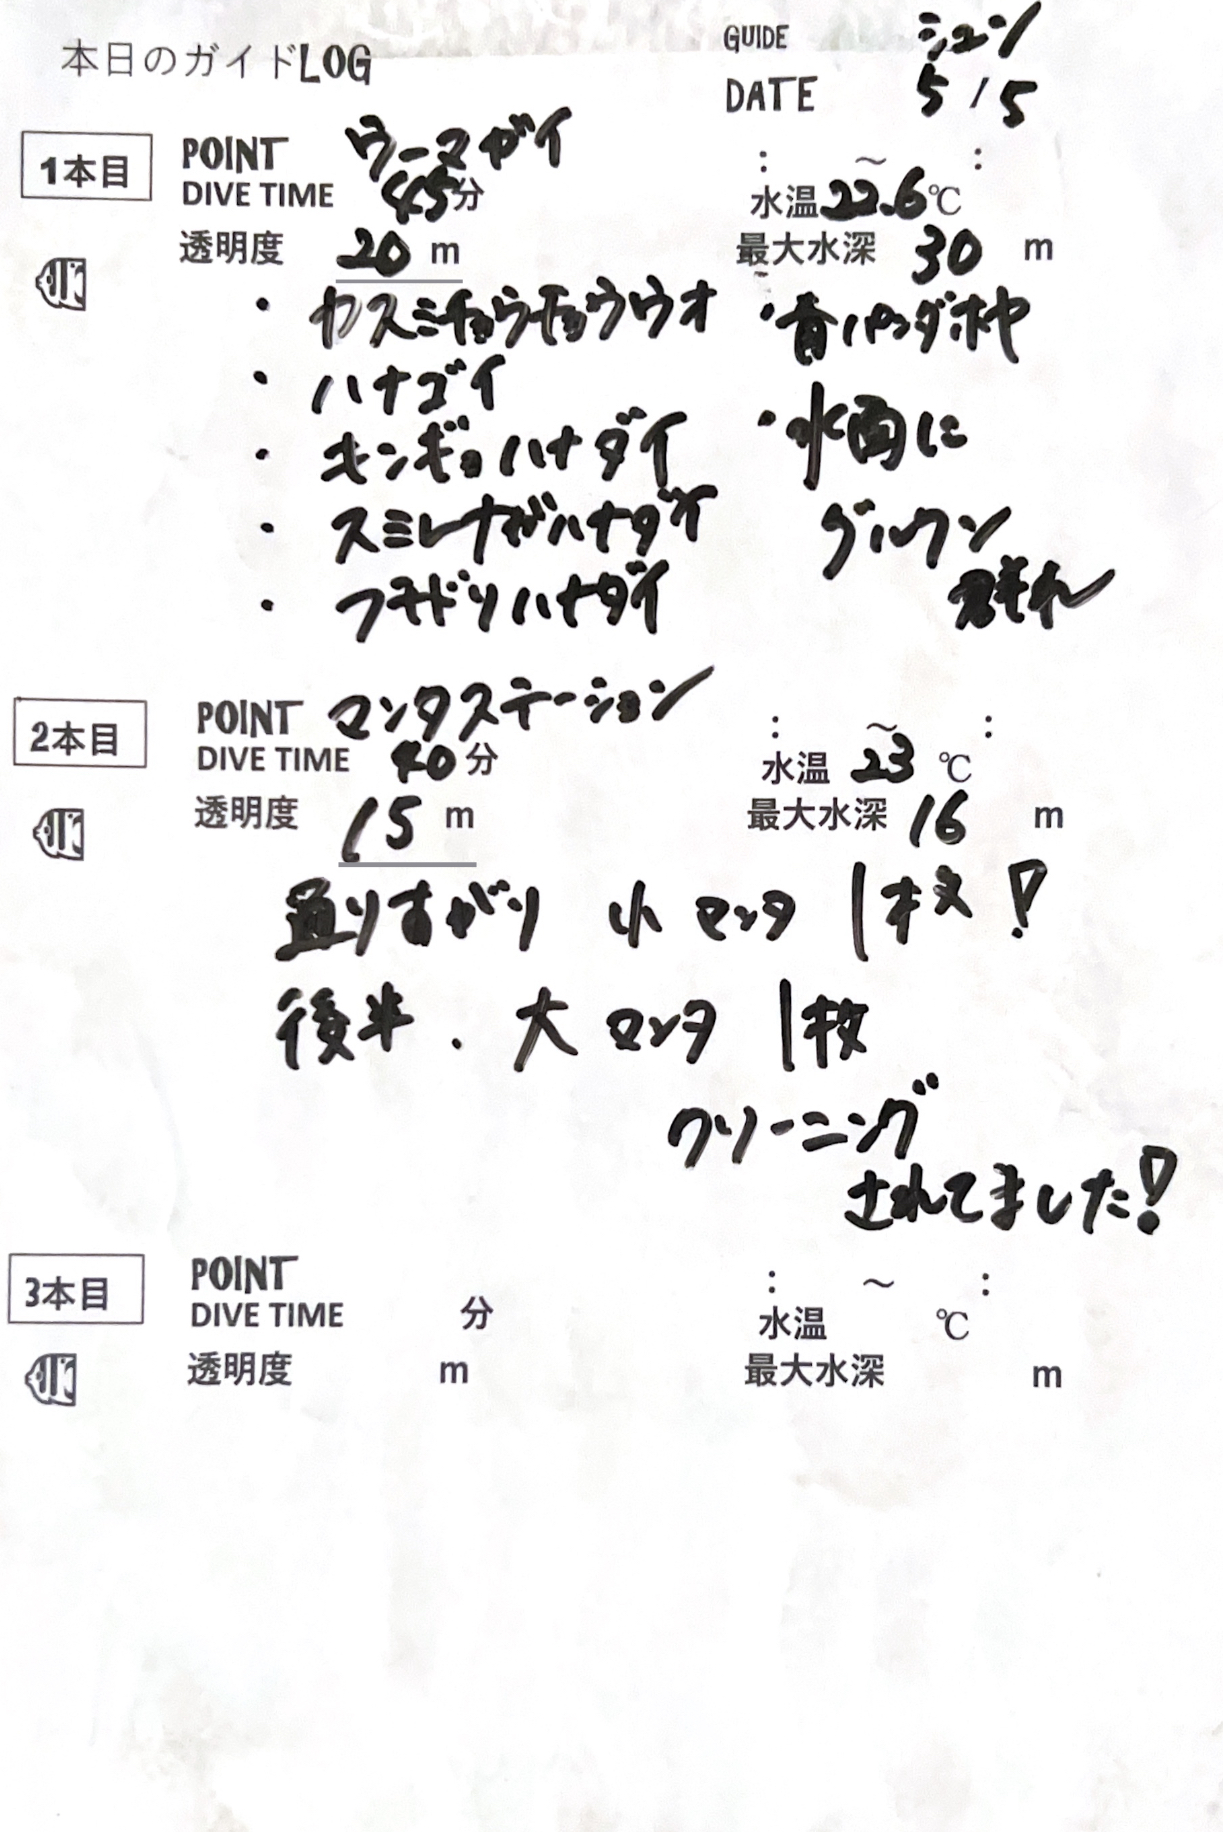 本日のガイドLOG
GUIDE シュン
DATE 5/5
1本目
POINT ウーマガイ : ～ :
DIVE TIME 45分 水温22.6℃
透明度 20 m 最大水深 30 m
・カスミチョウチョウウオ ・青パンダホヤ
・ハナゴイ
・キンギョハナダイ ・水面に
・スミレナガハナダイ グルクン
・フチドリハナダイ 群れ
2本目
POINT マンタステーション : ～ :
DIVE TIME 40分 水温 23 ℃
透明度 15 m 最大水深 16 m
通りすがり 小マンタ 1枚!
後半. 大マンタ 1枚
クリーニング
されてました!
3本目
POINT : ～ :
DIVE TIME 分 水温 ℃
透明度 m 最大水深 m